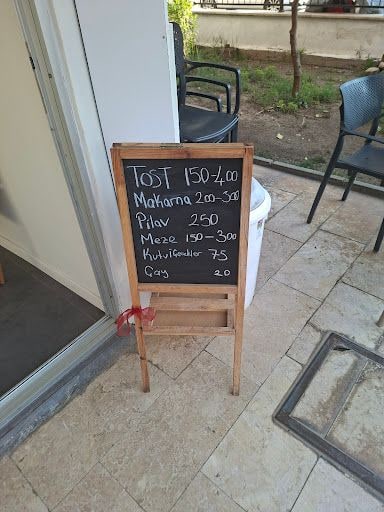 TOST 150-400
Makarna 200-300
Pilav 250
Meze 150-300
Kutu içecekler 75
Çay 20